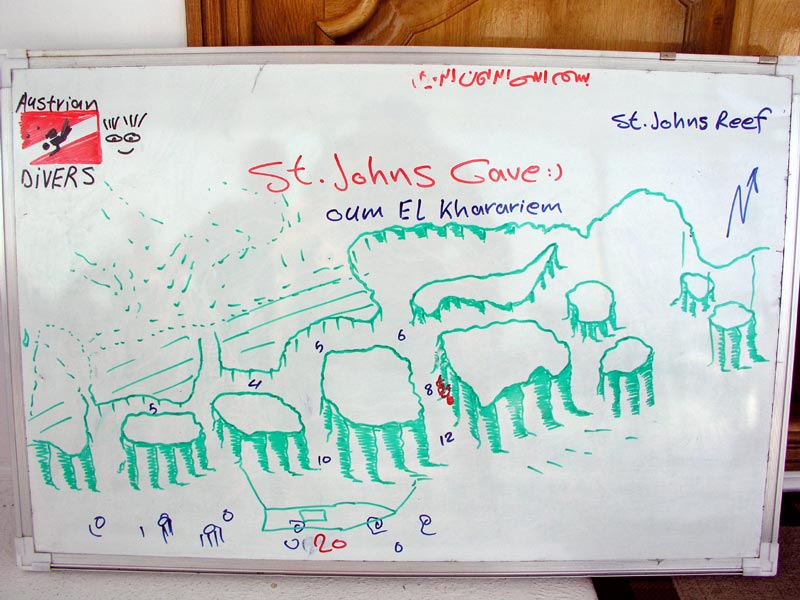 Austrian
DiVERS
St.Johns Reef
St.Johns Cave:)
oum EL Kharariem
N
5
6
4
5
8
10
12
20